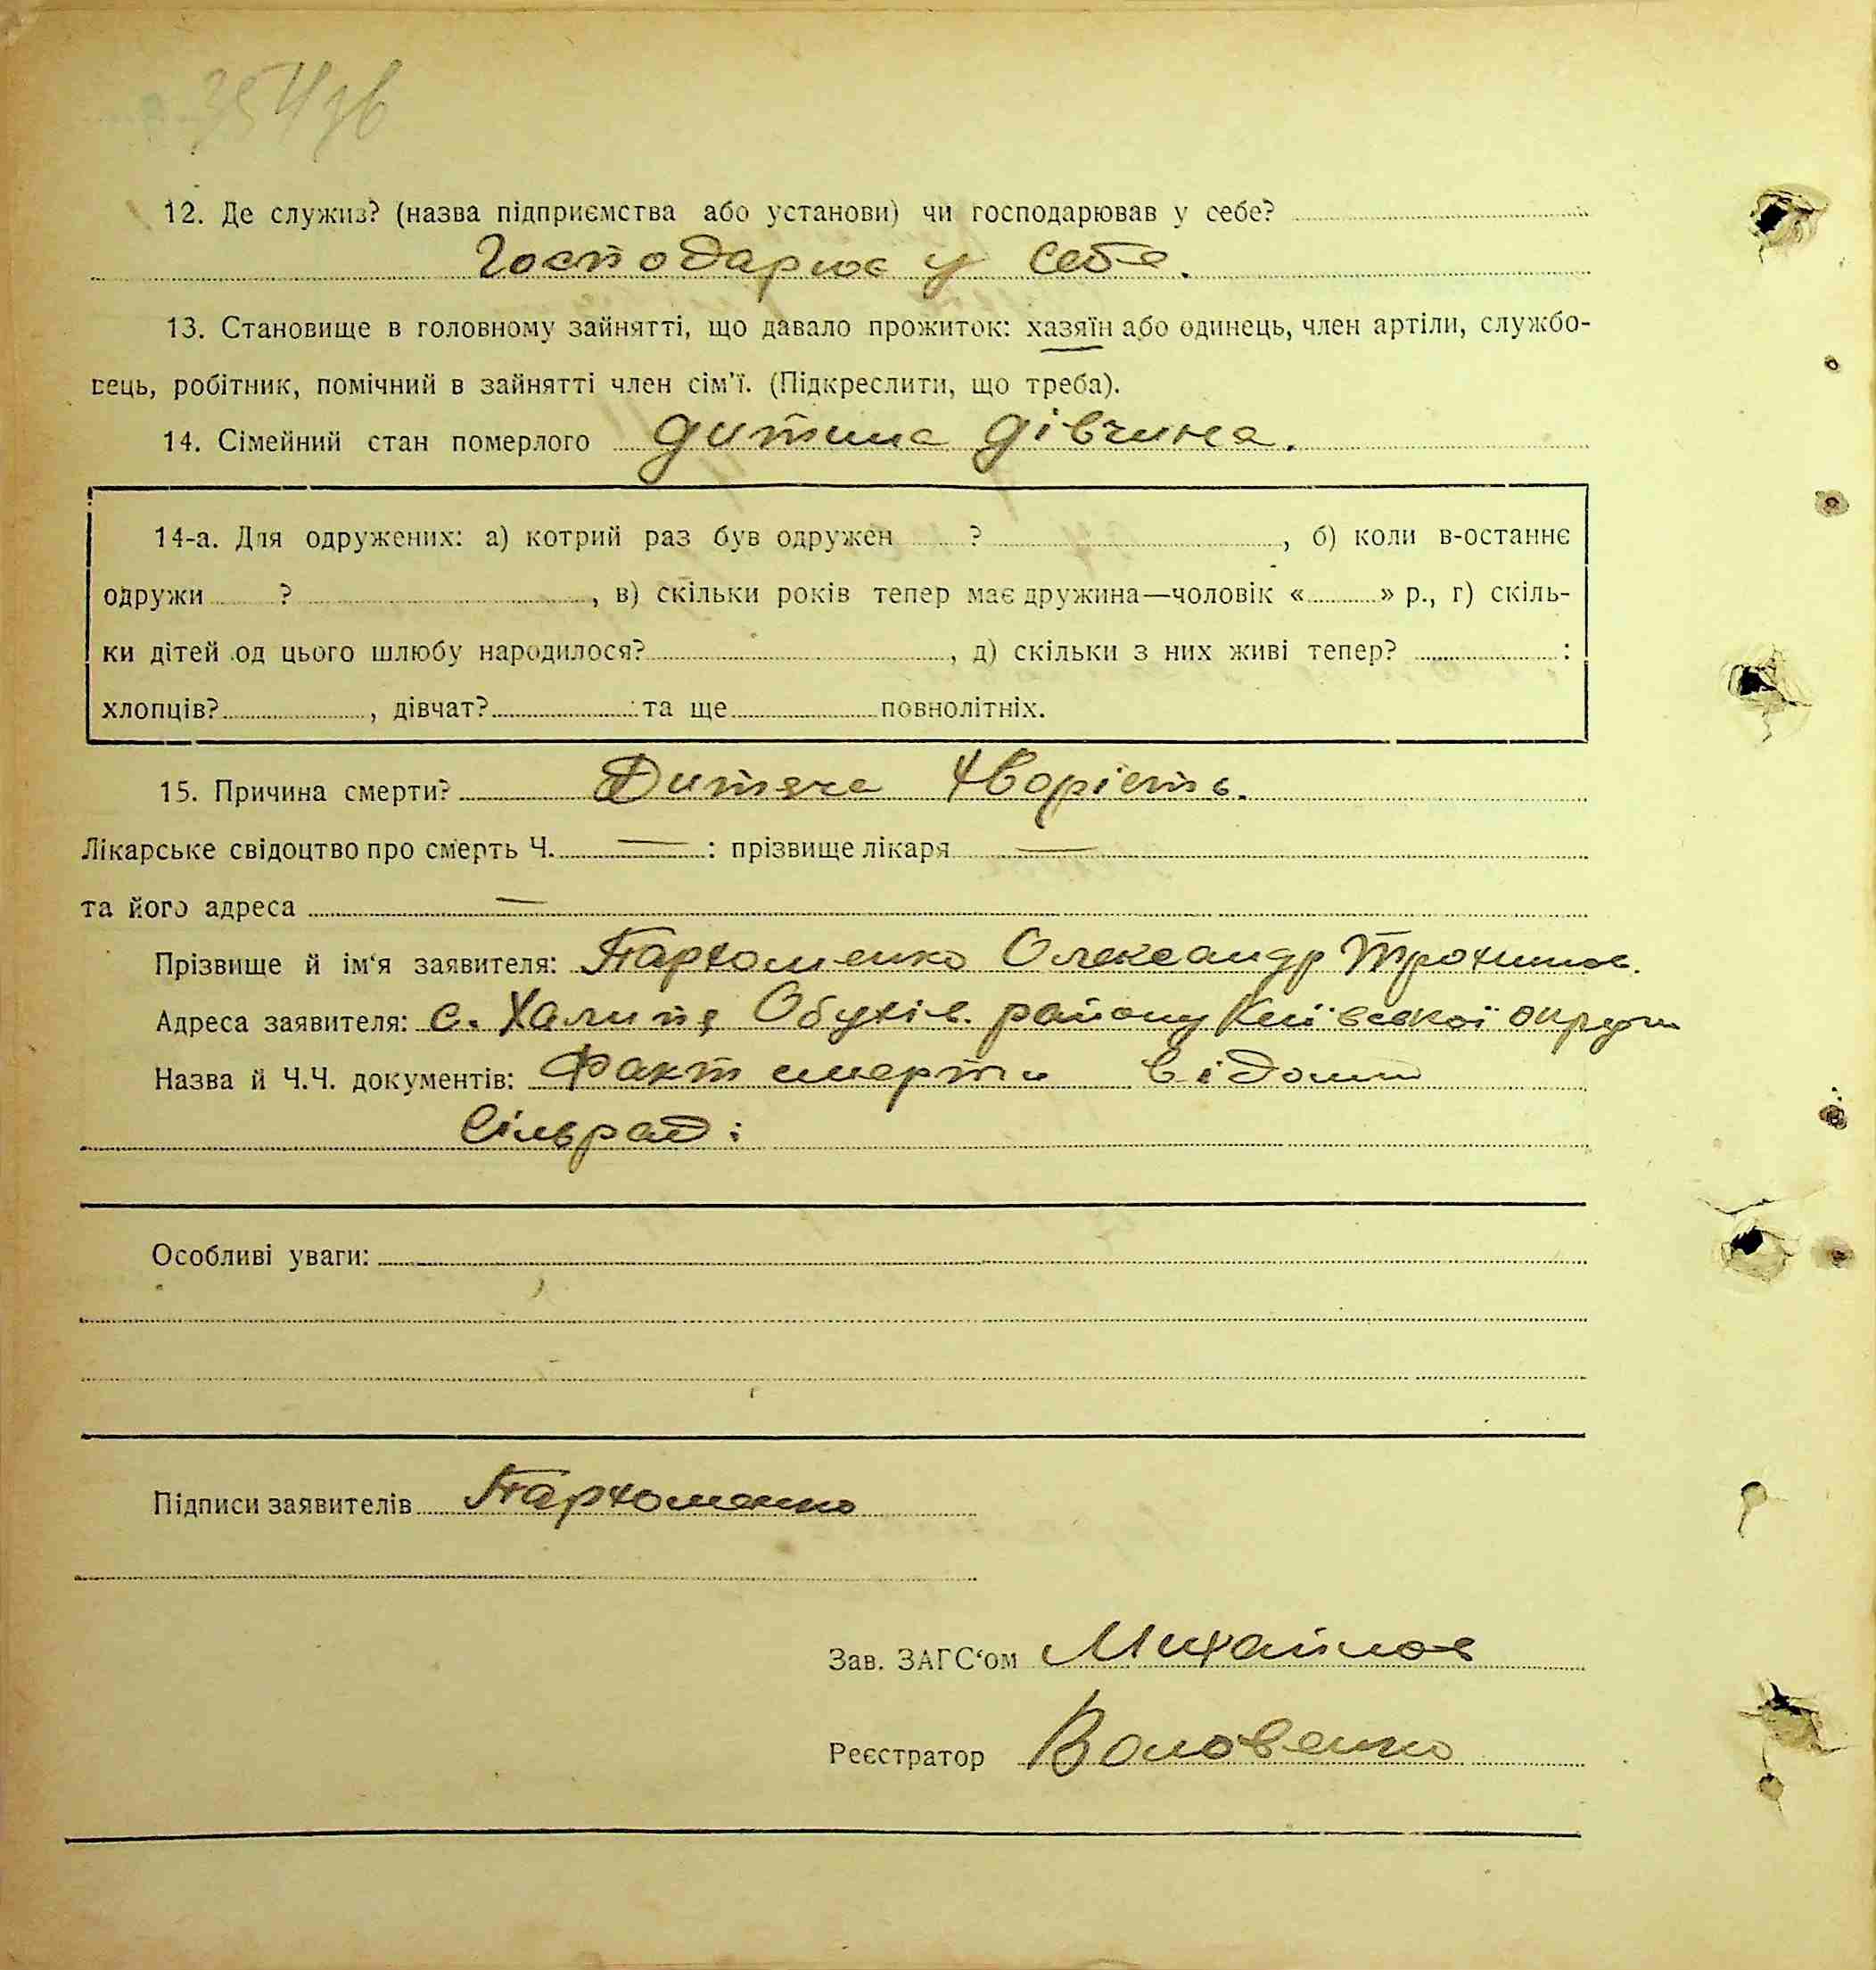 354зв
12. Де служив? (назва підприємства або установи) чи господарював у себе?
Господарює у себе.
13. Становище в головному зайнятті, що давало прожиток: хазяїн або одинець, член артіли, службо-
вець, робітник, помічний в зайнятті член сім'ї. (Підкреслити, що треба).
14. Сімейний стан померлого дитина дівчина.
14-а. Для одружених: а) котрий раз був одружен ? , б) коли в-останнє
одружи ? , в) скільки років тепер має дружина—чоловік « » р., г) скіль-
ки дітей од цього шлюбу народилося? , д) скільки з них живі тепер? :
хлопців? , дівчат? та ще повнолітніх.
15. Причина смерти? Дитяча хворість.
Лікарське свідоцтво про смерть Ч. — : прізвище лікаря —
та його адреса —
Прізвище й ім'я заявителя: Пархоменко Олександр Трохимов.
Адреса заявителя: с. Халипя Обухів. району Київської округи
Назва й Ч.Ч. документів: Факт смерти відомий
Сільраді
Особливі уваги:
Підписи заявителів Пархоменко
Зав. ЗАГС'ом Михайлов
Реєстратор Воловенко